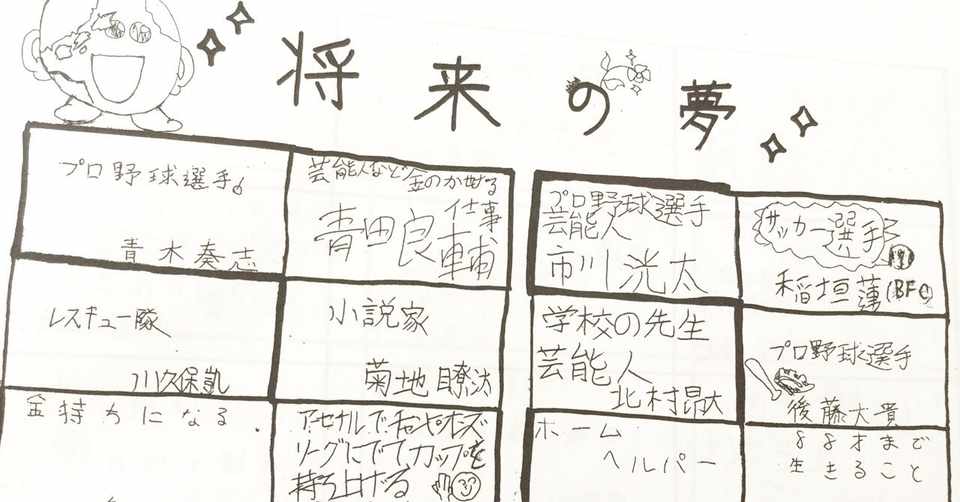 将来の夢
プロ野球選手
青木奏志
芸能人など金のかせる
仕事
青田良輔
プロ野球選手
芸能人
市川滉太
サッカー選手
稲垣蓮(BFC)
レスキュー隊
川久保凱
小説家
菊地瞭汰
学校の先生
芸能人
北村昂大
プロ野球選手
後藤大貴
金持ちになる
アーセナルでチャンピオンズ
リーグにでてカップを
持ち上げる
ホーム
ヘルパー
88才まで
生きること